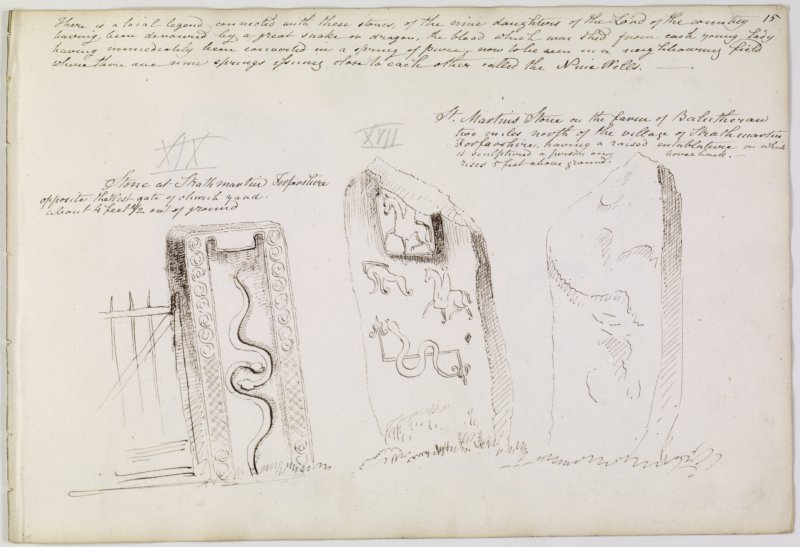 15
There is a local legend, connected with these stones, of the nine daughters of the Lord of the country
having been devoured by a great snake or dragon, the blood which was shed from each young lady
having immediately been converted in a spring of power, now to be seen in a neighbouring field
where there are nine springs issuing close to each other called the Nine Wells.
St Martins Stone on the farm of Balutheran
two miles north of the village of Strathmartin
Forfarshire, having a raised entablature on which
is sculptured a person on horse back. —
rises 5 feet above ground.
XVII
XIX
Stone at Strathmartin Forfarshire
opposite the West gate of church yard.
about 4 feet 1/2 out of ground